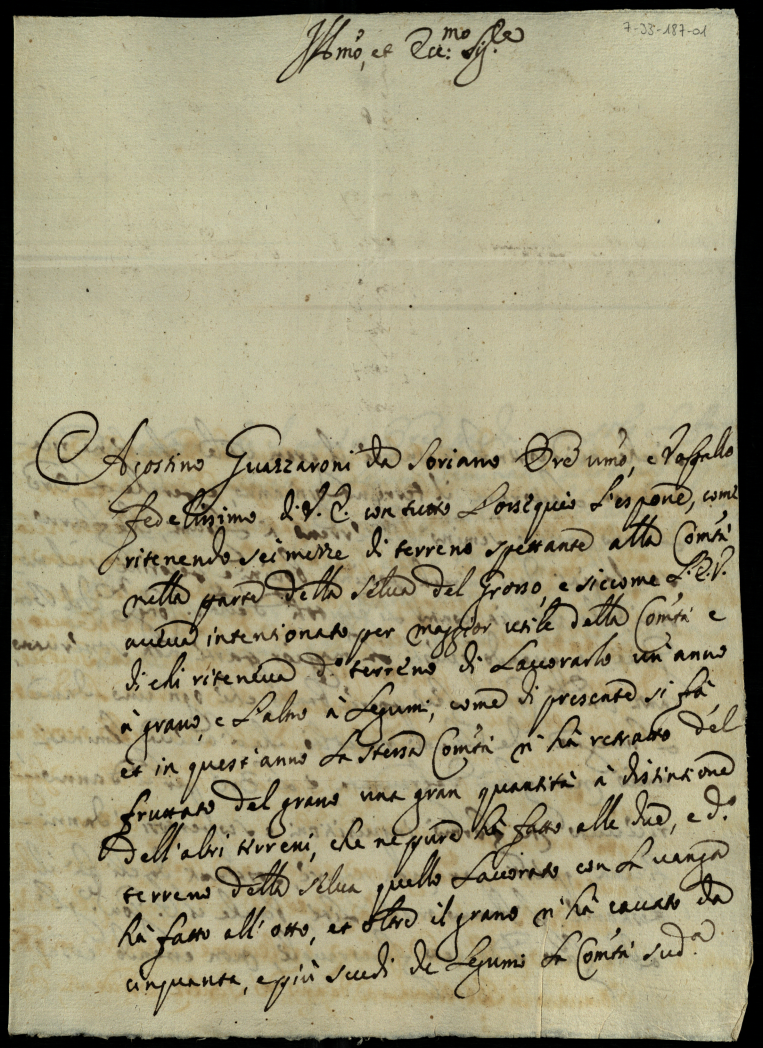 7-33-187-01
Ill.mo, et Ecc:mo Sig.re
Agostino Guazzaroni da Soriano Ore umo, e Vassallo
fedelissimo di V. E. con tutto L'ossequio L'espone, come
ritenendo sei mezze di terreno spettante alla Com.tà
nella parte della Selva del Grosso, e siccome L'E.V.
aveva intentionato per maggior utile della Com.tà e
di chi riteneva d.o terreno di Lavorarlo un'anno
à grano, e L'altro à Legumi, come di presente si fà,
et in quest'anno La stessa Com.tà n'hà retratto del
fruttato del grano una gran quantità à distintione
dell'altri terreni, che nepure hà fatto alle due, e d.o
terreno della Selva quello Lavorato con La vanga
hà fatto all'otto, et oltre il grano n'hà cavato da
cinquanta, e più scudi de Legumi La Com.tà sud.a